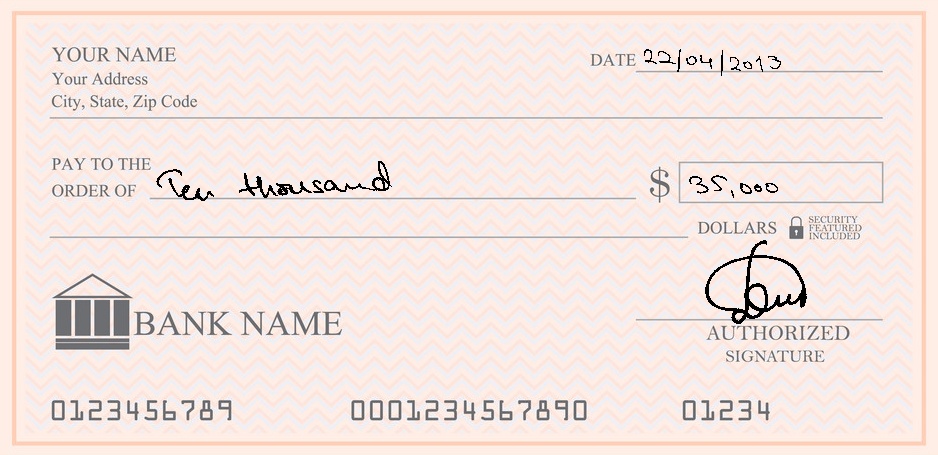 YOUR NAME
Your Address
City, State, Zip Code
DATE 22/04/2013
PAY TO THE
ORDER OF Ten thousand $ 35,000
DOLLARS SECURITY FEATURED INCLUDED
BANK NAME
AUTHORIZED
SIGNATURE
0123456789 0001234567890 01234